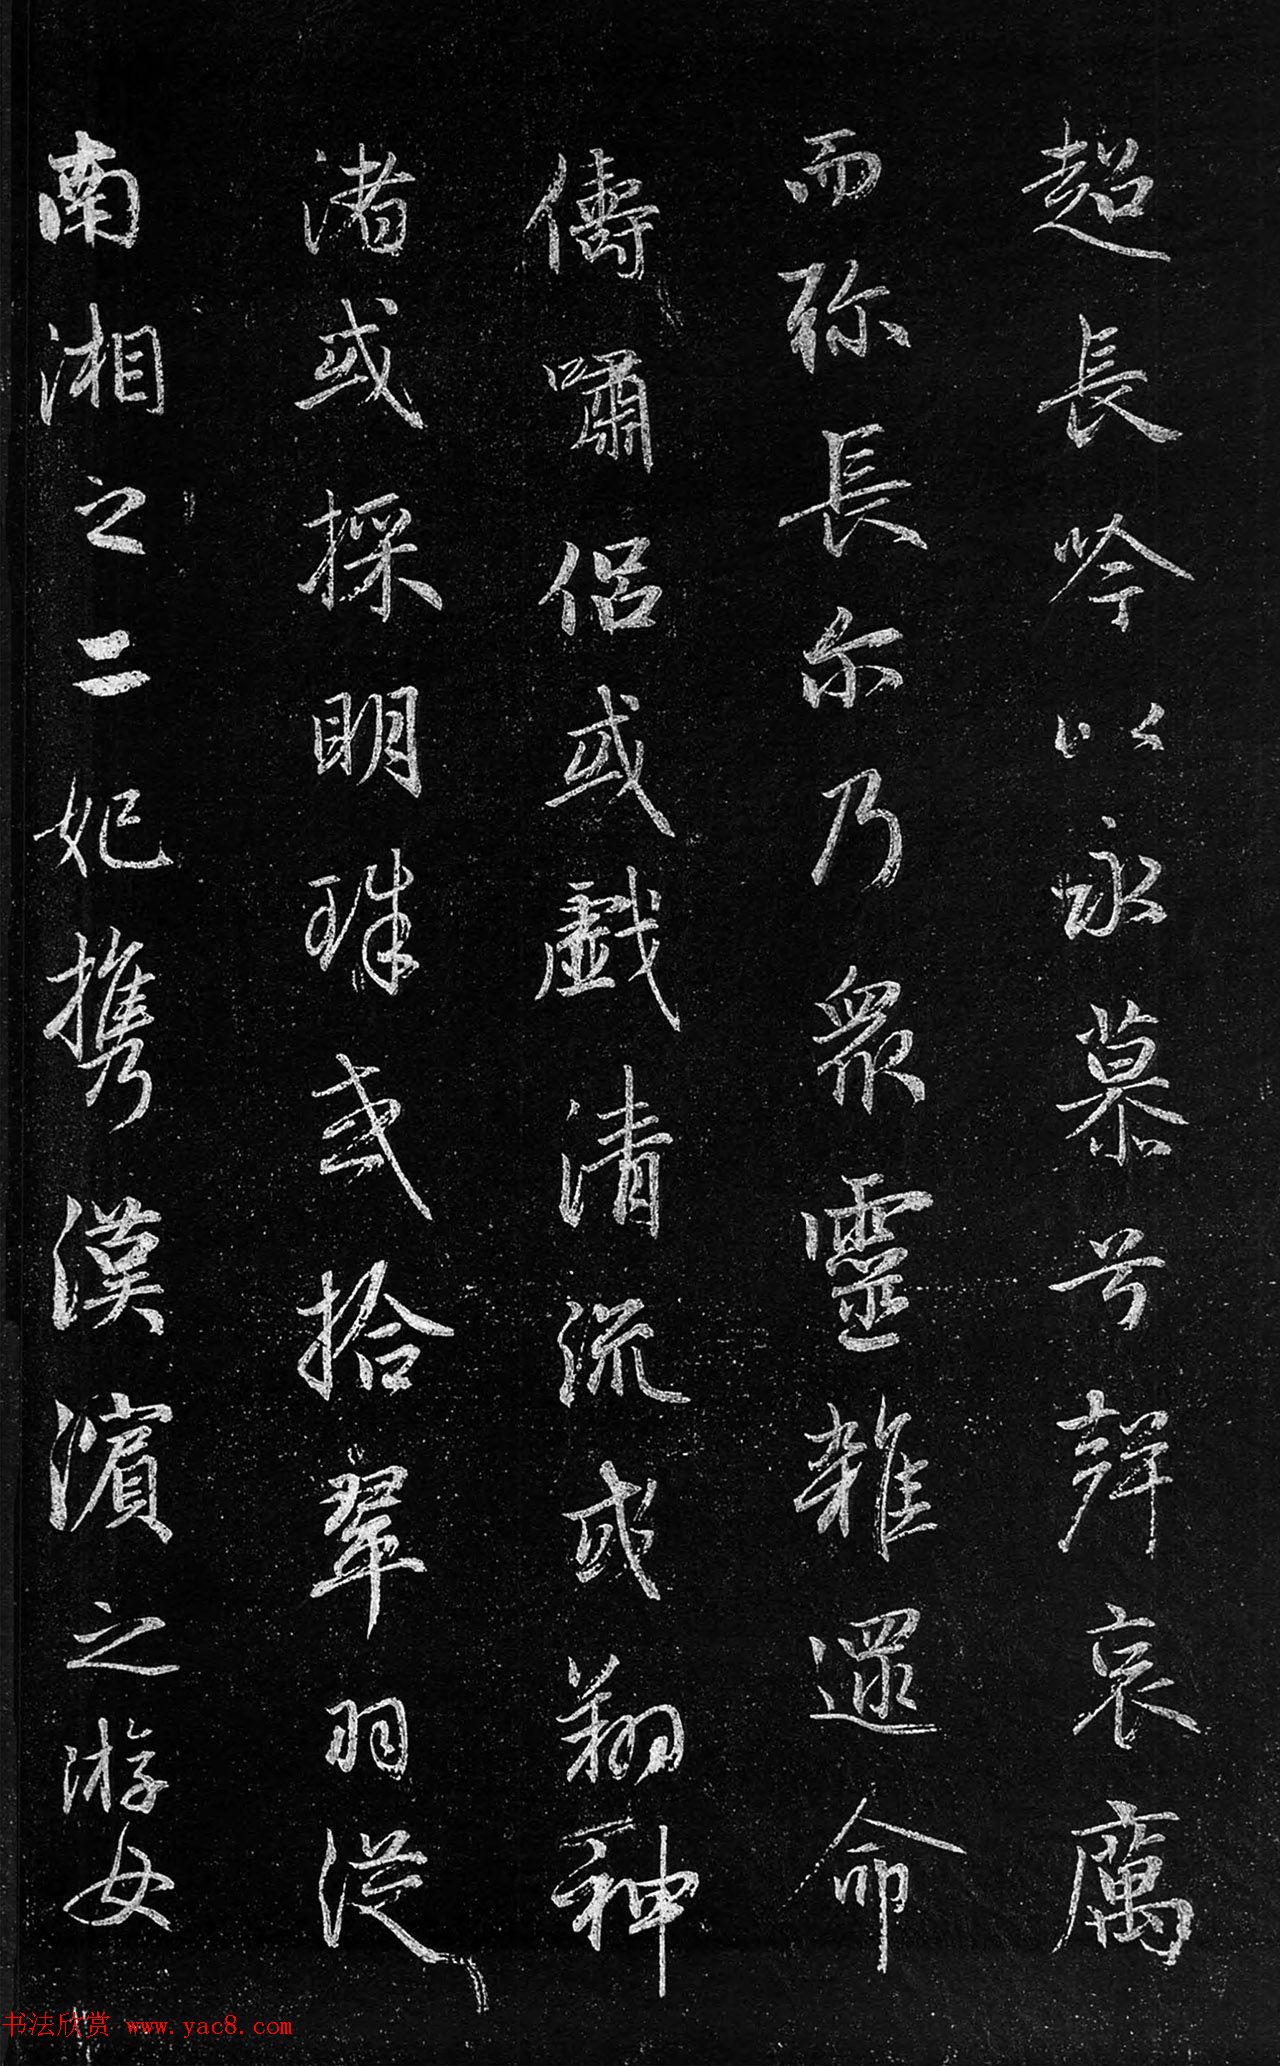 超長吟以永慕兮聲哀厲
而弥長尔乃眾靈雜遝命
儔嘯侶或戲清流或翔神
渚或採明珠或拾翠羽從
南湘之二妃攜漢濱之游女
书法欣赏 www.yac8.com